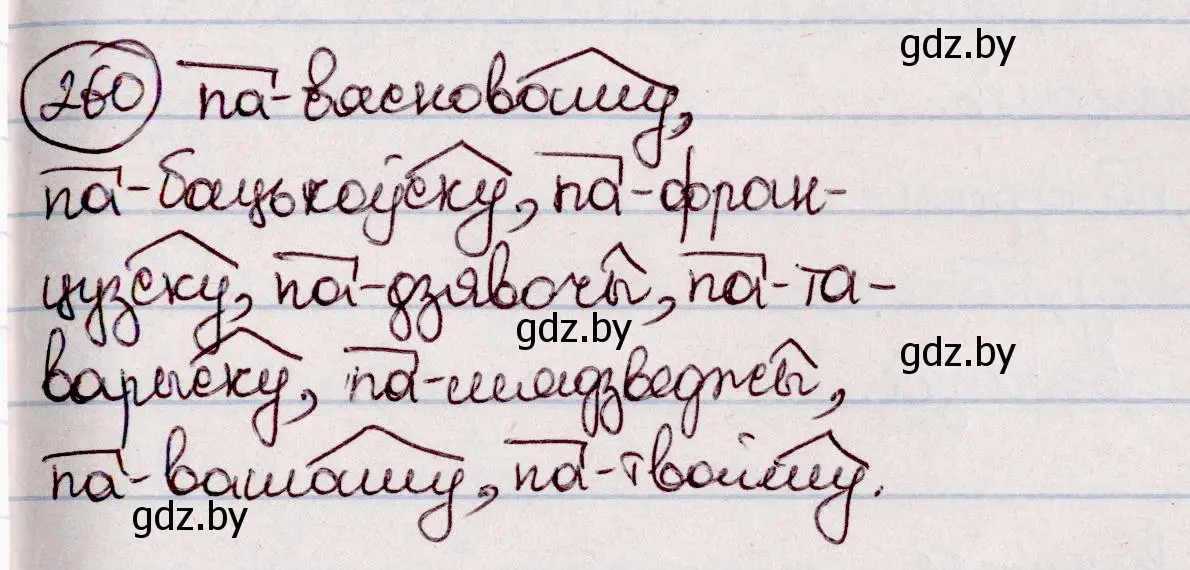 gdz.by
260 па-васковаму,
па-бацькоўску, па-фран-
цузску, па-дзявочы, па-та-
gdz.by
gdz.by
варыску, па-мядзведжы,
па-вашаму, па-твойму.
gdz.by